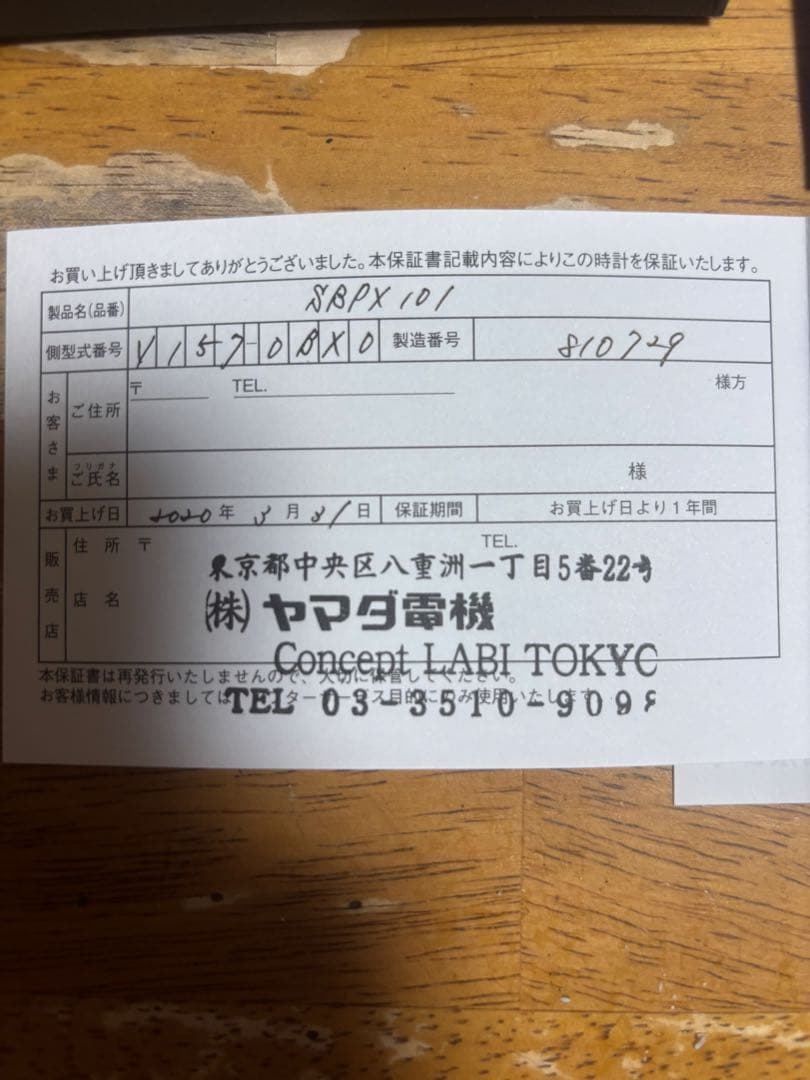 お買い上げ頂きましてありがとうございました。本保証書記載内容によりこの時計を保証いたします。
製品名(品番) SBPX101
側型式番号 V157-0BX0 製造番号 810729
お客さま
ご住所 〒 TEL. 様方
フリガナ
ご氏名 様
お買上げ日 2020年 3月 31日 保証期間 お買上げ日より1年間
販売店
住所 〒 TEL.
東京都中央区八重洲一丁目5番22号
店名 (株)ヤマダ電機
Concept LABI TOKYO
本保証書は再発行いたしませんので、大切に保管してください。
お客様情報につきましては
TEL 03-3510-909
ターサービス目的にのみ使用いたします。